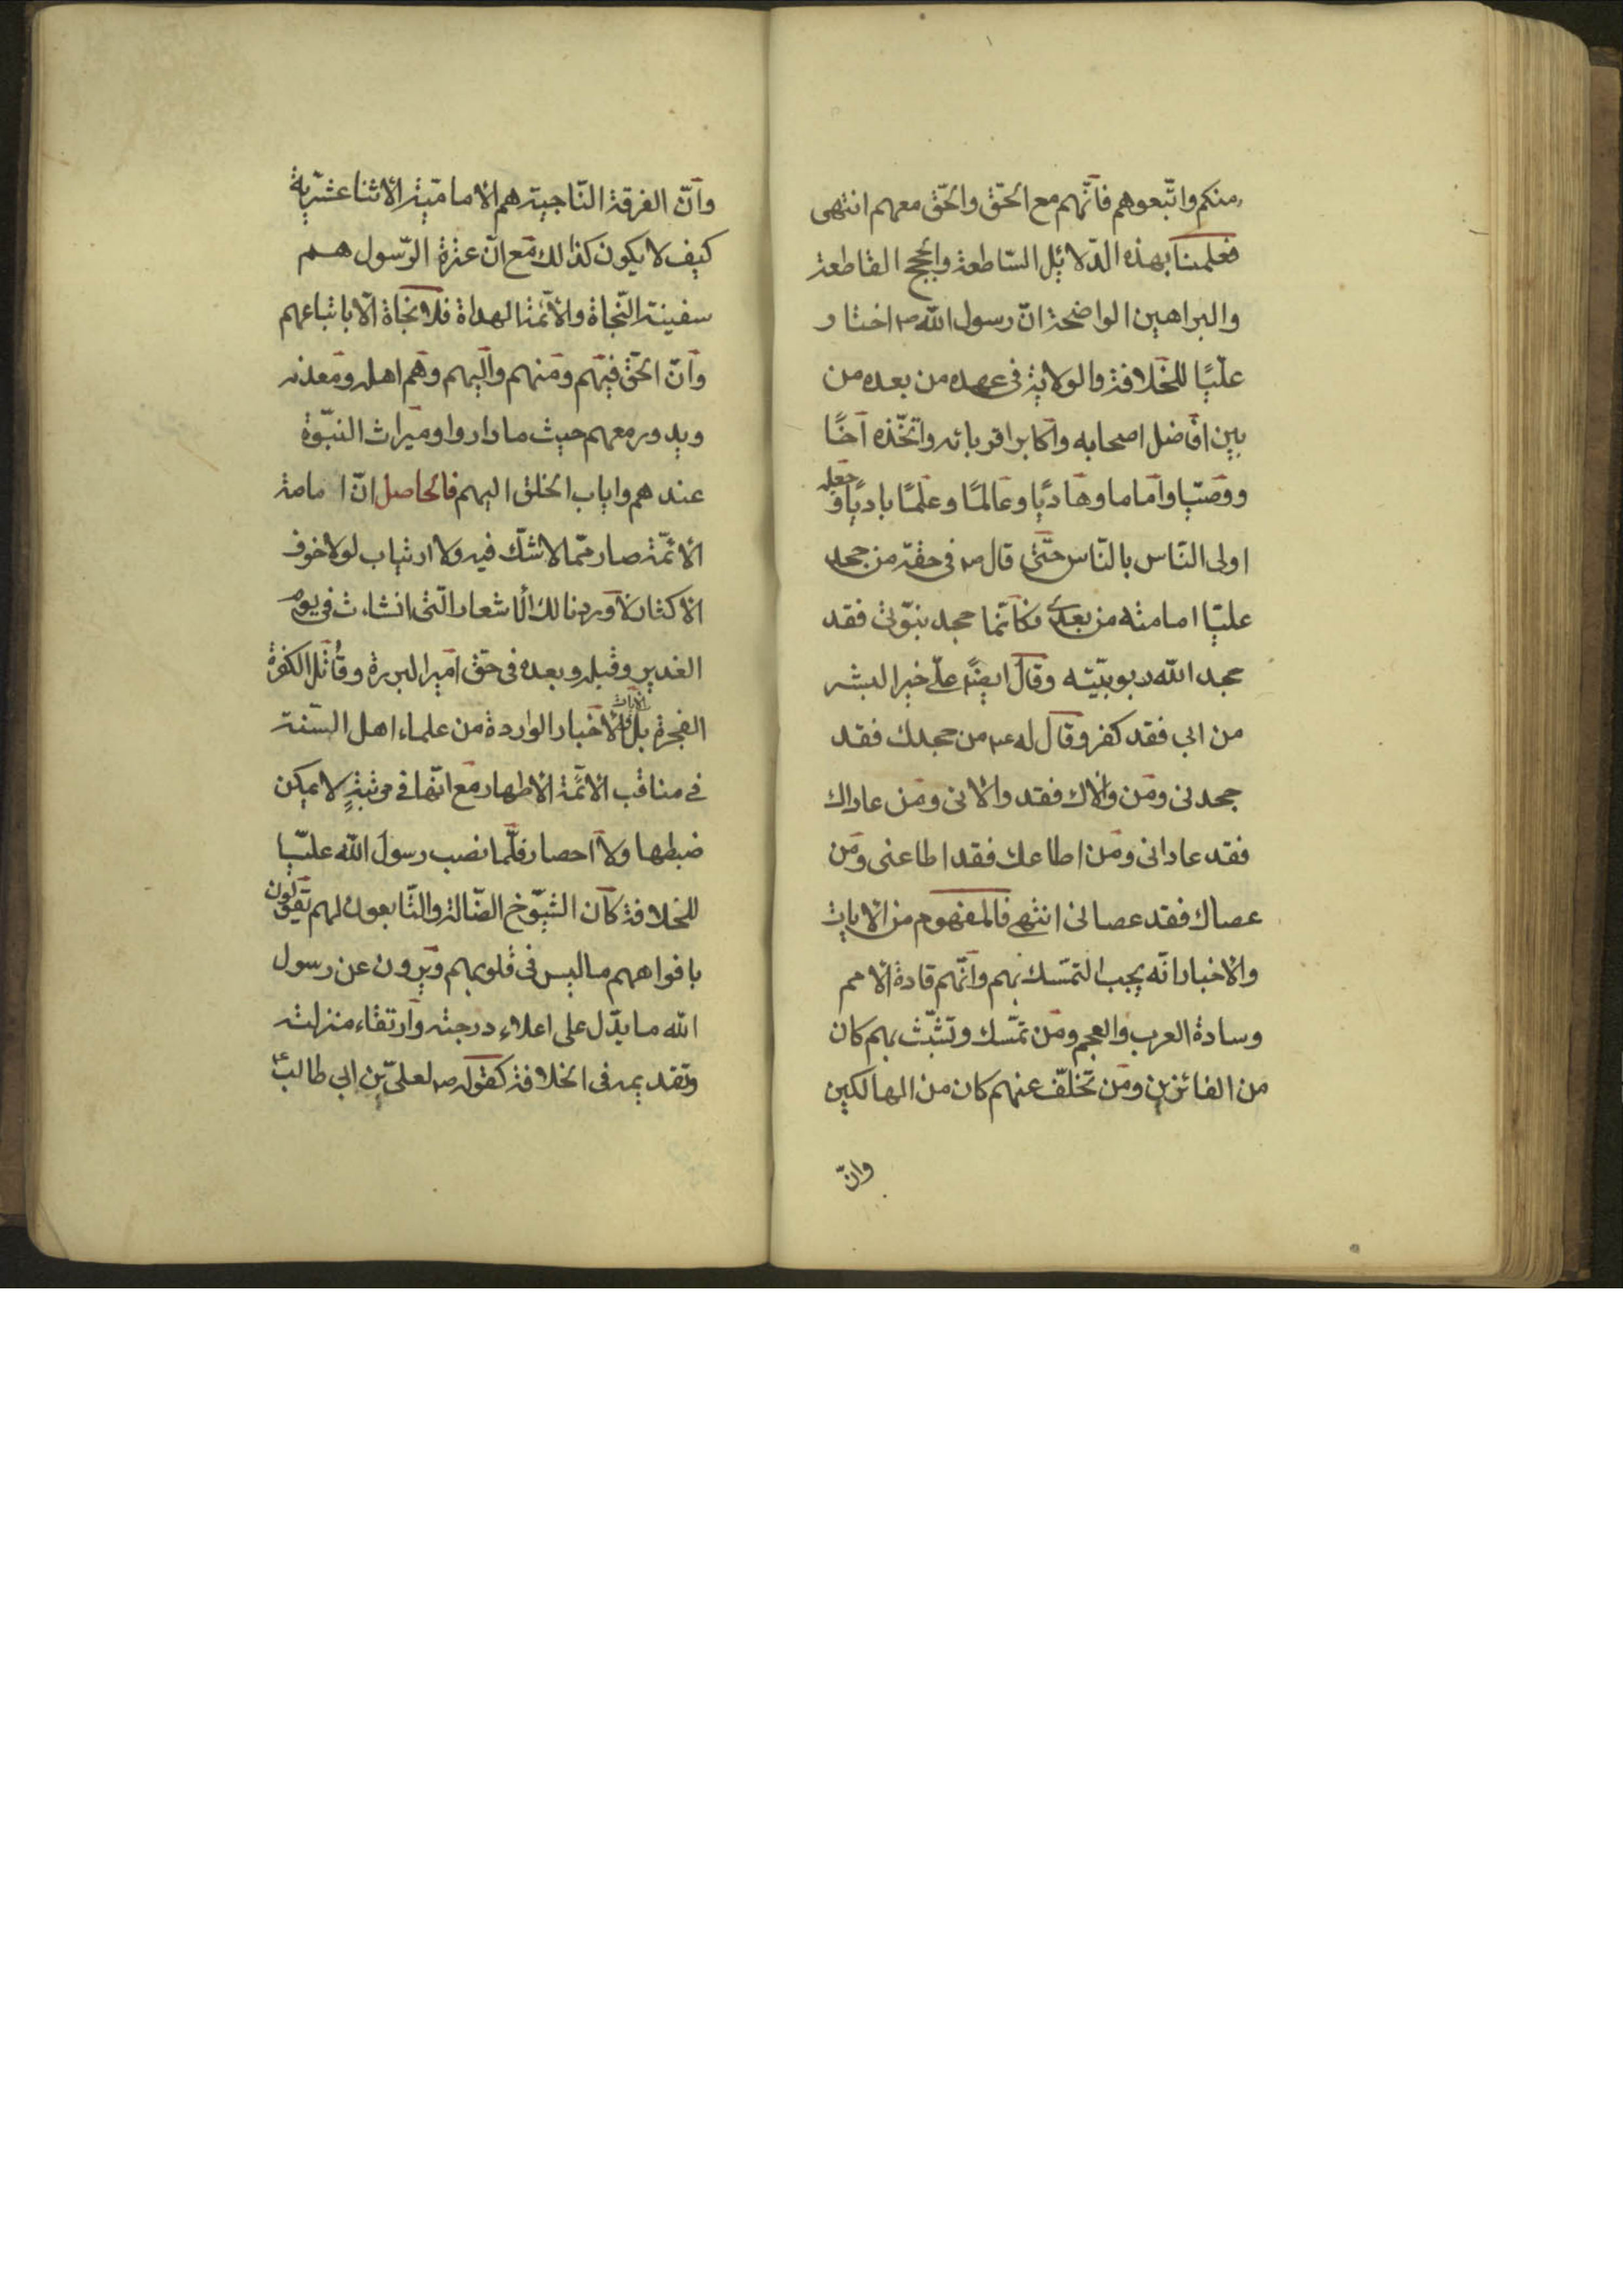 منكم واتّبعوهم فانّهم مع الحقّ والحقّ معهم انتهى
فعلمنا بهذه الدّلائل السّاطعة والحجج القاطعة
والبراهين الواضحة انّ رسول الله ص اختار
عليّا للخلافة والولاية فى عهده من بعده من
بين افاضل اصحابه واكابر اقربائه واتخّذه اخًا
ووصيّا واماما وهاديًا وعالمًا وعلمًا باديًا و جعله
اولى النّاس بالنّاس حتّى قال ص فى حقّه من جحد
عليّا امامته من بعدى فكانّما جحد نبوّتى فقد
جحد الله ربوبيّته وقال ايضًا علىّ خير البشر
من ابى فقد كفر وقال له ع من جحدك فقد
جحدنى ومن والاك فقد والانى ومن عاداك
فقد عادانى ومن اطاعك فقد اطاعنى ومن
عصاك فقد عصانى انتهى فالمفهوم من الايات
والاخبار انّه يجب التمسّك بهم وانّهم قادة الامم
وسادة العرب والعجم ومن تمسّك وتشبّث بهم كان
من الفائزين ومن تخلّف عنهم كان من الهالكين
وانّ
وانّ الفرقة النّاجية هم الاماميّة الاثنا عشريّة
كيف لا يكون كذالك مع انّ عترة الرّسول هم
سفينة النّجاة والائمّة الهداة فلا نجاة الّا باتباعهم
وانّ الحقّ فيهم ومنهم واليهم وهم اهله ومعدنه
ويدور معهم حيث ما داروا وميراث النبّوة
عندهم واياب الخلق اليهم فالحاصل انّ امامة
الائمّة صار ممّا لا شكّ فيه ولا ارتياب لولا خوف
الاكثار لاوردنا لك الاشعار الّتى انشاءت فى يوم
الغدير وقبله وبعده فى حقّ امير البررة وقاتل الكفرة
الفجرة بل الايات والاخبار الواردة من علماء اهل السّنة
فى مناقب الائمّة الاطهار مع انّها فى مرتبةٍ لا يمكن
ضبطها ولا احصار فلّما نصب رسول الله عليّا
للخلافة كان الشيّوخ الضّالة والتّابعون لهم يقولون
بافواههم ما ليس فى قلوبهم ويروون عن رسول
الله ما يدّل على اعلاء درجته وارتقاء منزلته
وتقديمه فى الخلافة كقوله ص لعلىّ بن ابى طالب ع